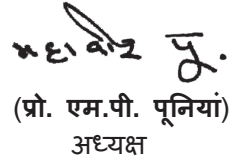 महावीर पु.
(प्रो. एम.पी. पूनियां)
अध्यक्ष